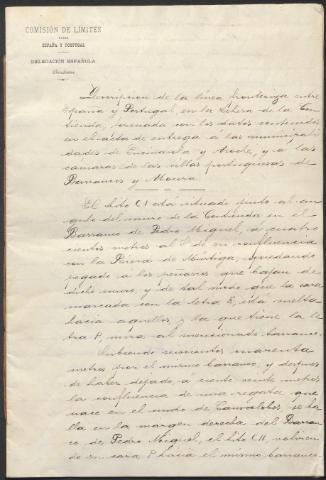 COMISIÓN DE LÍMITES
ENTRE
ESPAÑA Y PORTUGAL
DELEGACIÓN ESPAÑOLA
Descripcion de la línea fronteriza entre
España y Portugal, en la Dehesa de la Con-
tienda, formada con los datos contenidos
en el acta de entrega á las municipali-
dades de Encinasola y Aroche, y á las
cámaras de las villas portuguesas de
Barrancos y Moura.
El hito CI está situado junto al an-
gulo del muro de la Contienda en el
Barranco de Pedro Miguel, á cuatro
cientos metros al S. de su confluencia
con la Rivera de Múrtiga, quedando
pegado á los peñascos que bajan de
dicho muro, y de tal modo que la cara
marcada con la letra E, está vuelta
hacia aquellos, y la que tiene la le
tra P, mira al mencionado barranco.
Subiendo seiscientos cuarenta
metros por el mismo barranco, y despues
de haber dejado á ciento veinte metros
la confluencia de una regata que
nace en el nudo de se ha
lla en la margen derecha del Barran
co de Pedro Miguel, el hito CII, volvien
do su cara P hacia el mismo barranco.